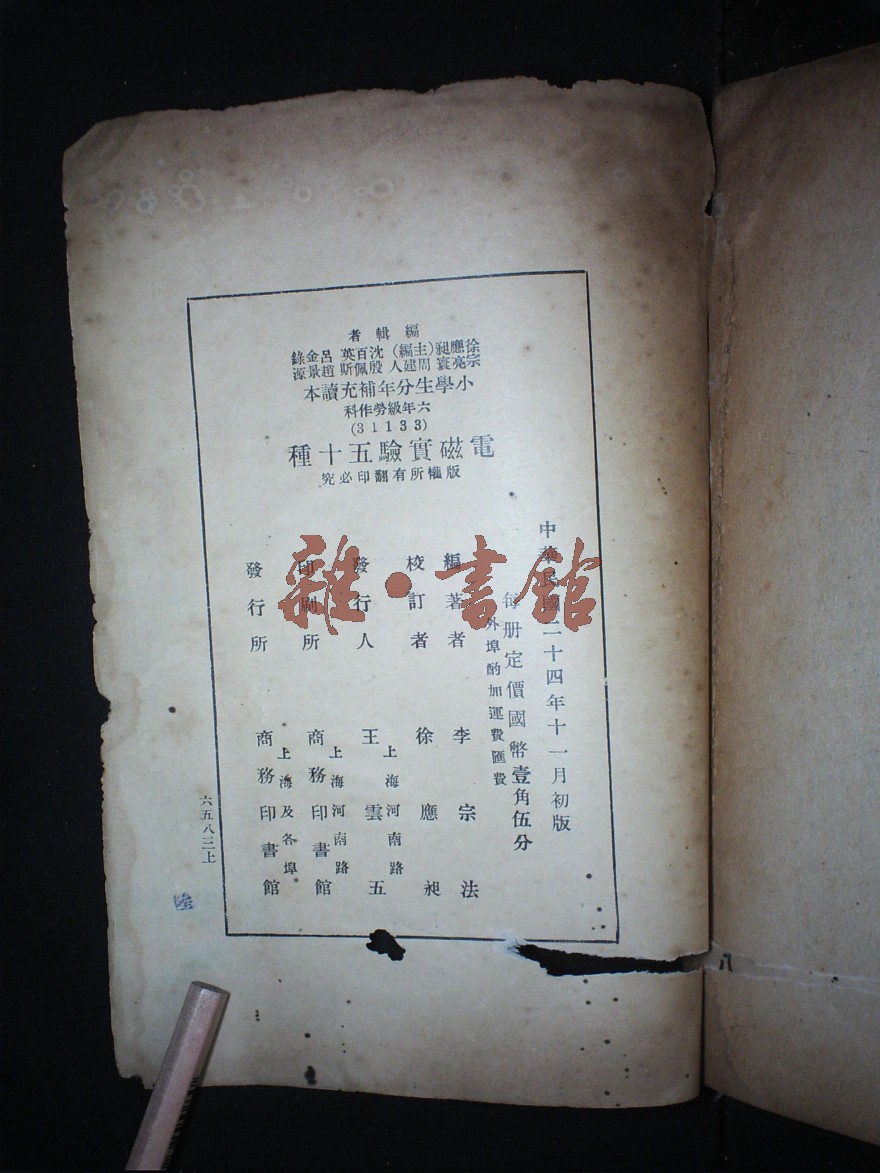 編輯者
徐應昶(主編) 沈百英 呂金錄
宗亮寰 周建人 殷佩斯 趙景源
小學生分年補充讀本
六年級勞作科
(31133)
電磁實驗五十種
版權所有翻印必究
中華民國二十四年十一月初版
每册定價國幣壹角伍分
外埠酌加運費匯費
編著者 李宗法
校訂者 徐應昶
發行人 王雲五
上海河南路
印刷所 商務印書館
上海河南路
發行所 商務印書館
上海及各埠
六五八三上
雜·書館